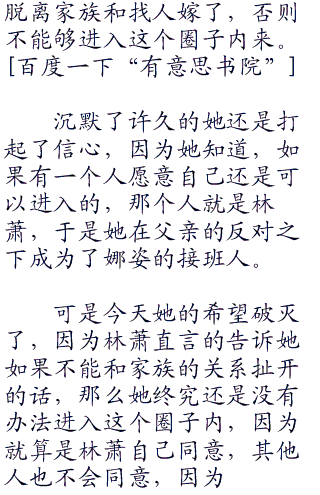 脱离家族和找人嫁了，否则
不能够进入这个圈子内来。
[百度一下“有意思书院”]
沉默了许久的她还是打
起了信心，因为她知道，如
果有一个人愿意自己还是可
以进入的，那个人就是林
萧，于是她在父亲的反对之
下成为了娜姿的接班人。
可是今天她的希望破灭
了，因为林萧直言的告诉她
如果不能和家族的关系扯开
的话，那么她终究还是没有
办法进入这个圈子内，因为
就算是林萧自己同意，其他
人也不会同意，因为